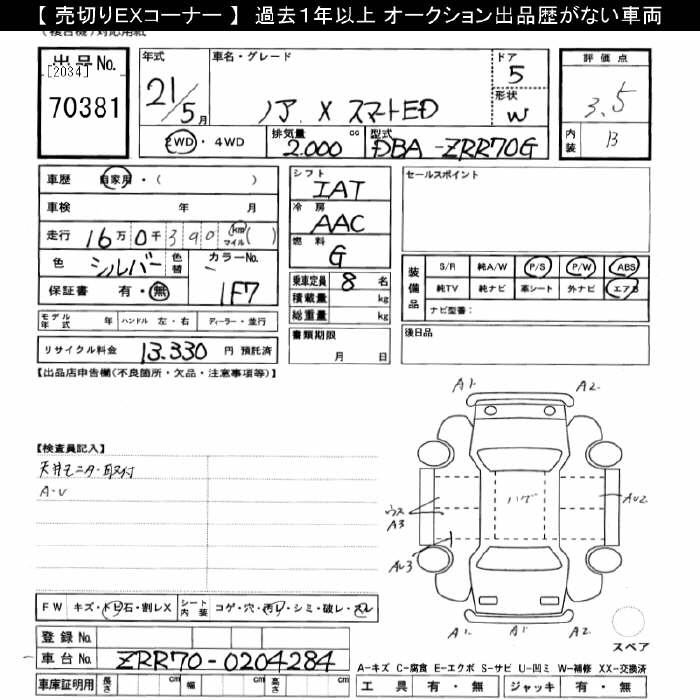 【 売切りEXコーナー 】 過去1年以上 オークション出品歴がない車両
出品No.
[2034]
70381
年式
21/5月
車名・グレード
ノア X スマートED
ドア
5
形状
W
評価点
3.5
内装
B
2WD・4WD
排気量
2.000 cc
型式
DBA-ZRR70G
車歴 自家用・( )
車検 年 月
走行 16万0千390 km マイル( )
色 シルバー 色替 カラーNo. 1F7
保証書 有・無
シフト
IAT
冷房
AAC
燃料
G
乗車定員 8 名
積載量 kg
総重量 kg
書類期限
月 日
セールスポイント
装備品
S/R 純A/W P/S P/W ABS
純TV 純ナビ 革シート 外ナビ エアB
ナビ型番:
後日品
モデル年式 年 ハンドル 左・右 ディーラー・並行
リサイクル料金 13.330 円 預託済
【出品店申告欄(不良箇所・欠品・注意事項等)】
【検査員記入】
天井モニター取付
A・U
A1 A2
ウス
A3
ハゲ
AU2
AU3
A1 A1 A2
スペア
FW キズ・トビ石・割レX シート内装 コゲ・穴・汚レ・シミ・破レ・スレ
登録No.
車台No. ZRR70-0204284
車庫証明用 長さ cm 幅 cm 高さ cm
A-キズ C-腐食 E-エクボ S-サビ U-凹ミ W-補修 XX-交換済
工具 有・無 ジャッキ 有・無